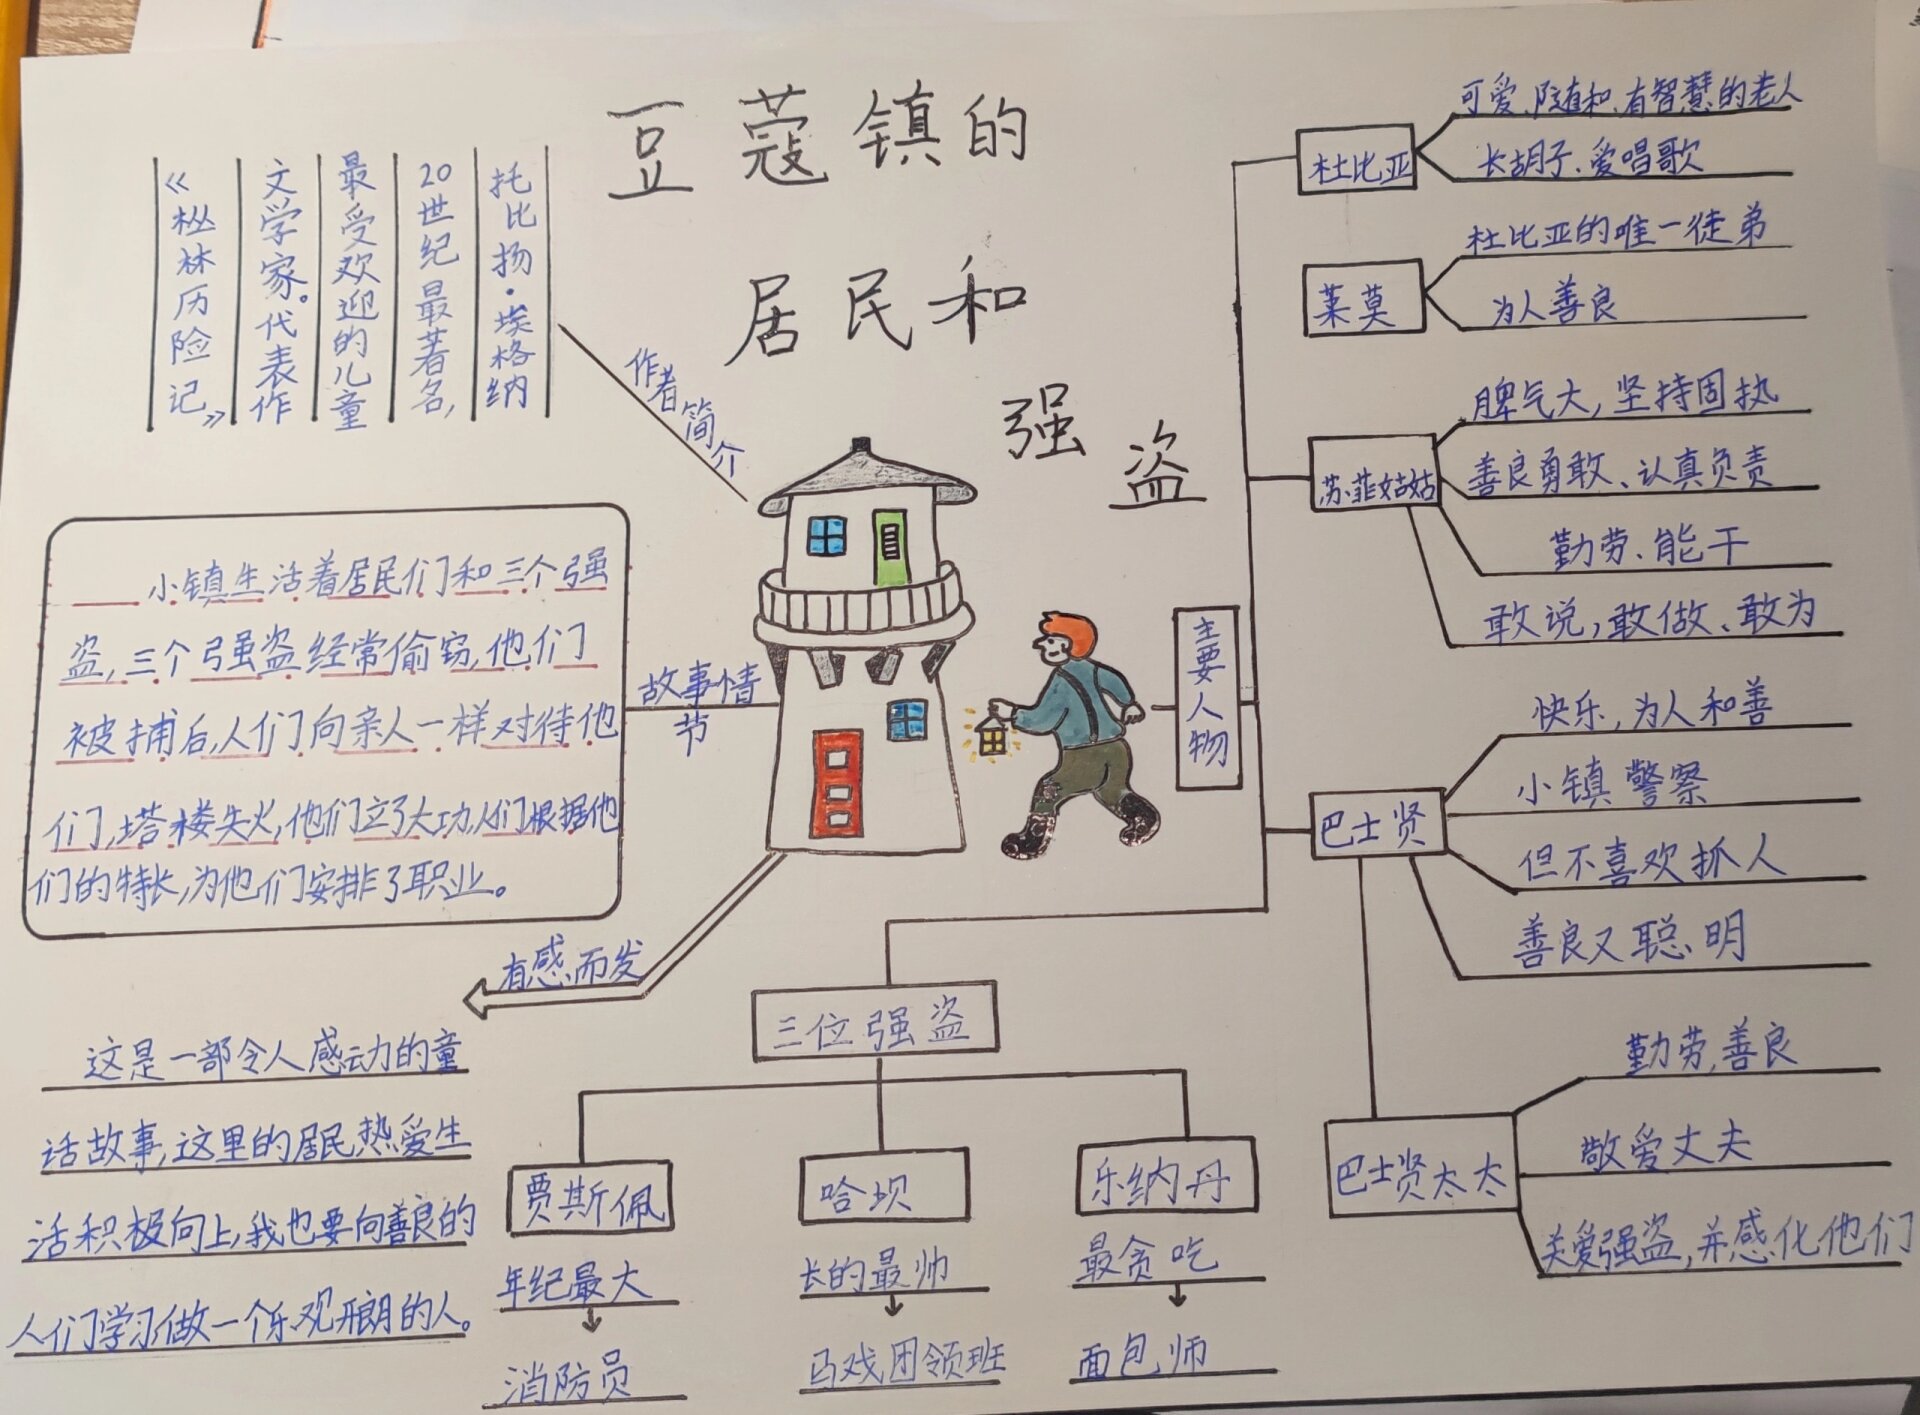 豆蔻镇的
居民和
强盗
托比扬·埃格纳
20世纪最著名,
最受欢迎的儿童
文学家。代表作
《丛林历险记》
作者简介
小镇生活着居民们和三个强
盗,三个强盗经常偷窃,他们
被捕后,人们向亲人一样对待他
们,塔楼失火,他们立了大功,人们根据他
们的特长,为他们安排了职业。
故事情
节
有感而发
这是一部令人感动的童
话故事,这里的居民热爱生
活积极向上,我也要向善良的
人们学习做一个乐观开朗的人。
主要人物
杜比亚
可爱、随和、有智慧的老人
长胡子、爱唱歌
莱莫
杜比亚的唯一徒弟
为人善良
苏菲姑姑
脾气大,坚持固执
善良勇敢、认真负责
勤劳、能干
敢说,敢做、敢为
巴士贤
快乐,为人和善
小镇警察
但不喜欢抓人
善良又聪明
巴士贤太太
勤劳,善良
敬爱丈夫
关爱强盗,并感化他们
三位强盗
贾斯佩
年纪最大
消防员
哈坝
长的最帅
马戏团领班
乐纳丹
最贪吃
面包师